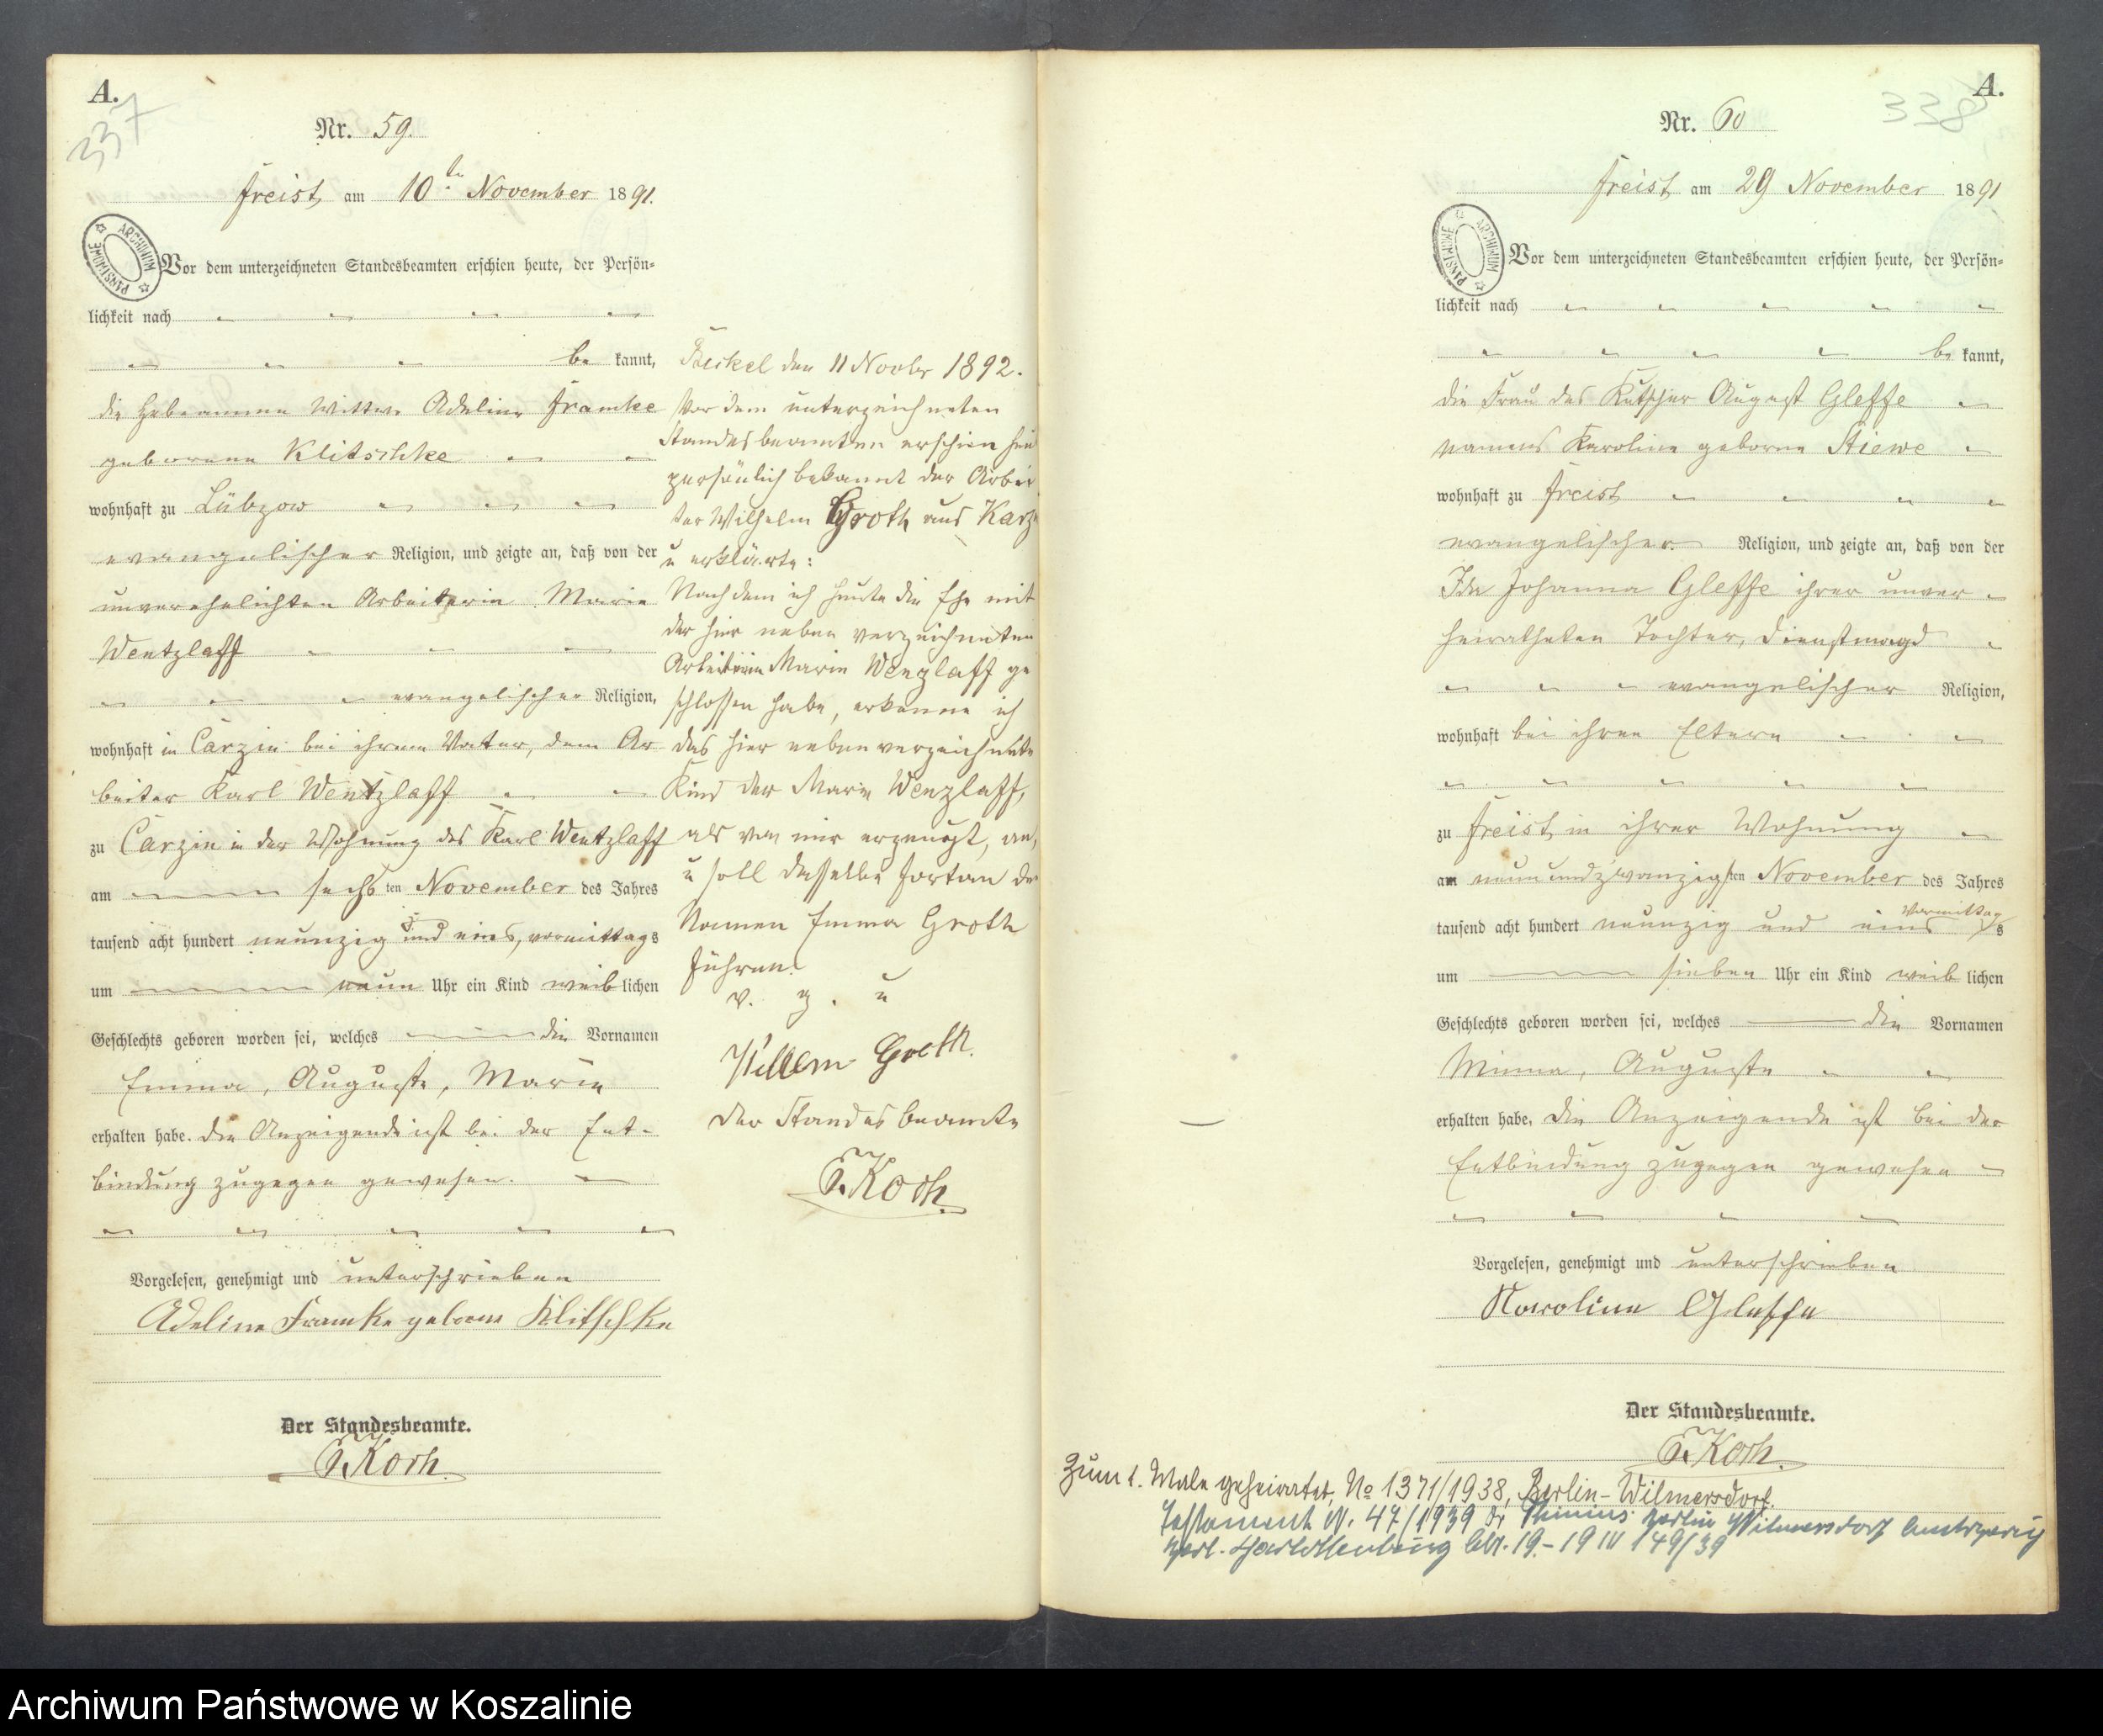 A.
337
Nr. 59.
Freist am 10ten November 1891.
ARCHIWUM PAŃSTWOWE
Vor dem unterzeichneten Standesbeamten erschien heute, der Persön-
lichkeit nach
be kannt,
die Hebeamme Wittwe Adeline Framke
geborene Klitschke
wohnhaft zu Lübzow
evangelischer Religion, und zeigte an, daß von der
unverehelichten Arbeiterin Marie
Wentzlaff
evangelischer Religion,
wohnhaft in Carzin bei ihrem Vater, dem Ar
beiter Karl Wentzlaff
zu Carzin in der Wohnung des Karl Wentzlaff
am sechsten November des Jahres
tausend acht hundert neunzig und eins, vormittags
um neun Uhr ein Kind weiblichen
Geschlechts geboren worden sei, welches die Vornamen
Emma, Auguste, Marie
erhalten habe. Die Anzeigende ist bei der Ent-
bindung zugegen gewesen.
Vorgelesen, genehmigt und unterschrieben
Adeline Framke geborne Klitschke
Der Standesbeamte.
Koch.
den 11 Novbr 1892.
Vor dem unterzeichneten
Standesbeamten erschien heu
persönlich bekannt der Arbei
ter Wilhelm Groth aus Karz
u erklärte:
Nachdem ich heute die Ehe mit
der hier neben verzeichneten
Arbeiterin Marie Wenzlaff ge
schlossen habe, erkenne ich
das hier neben verzeichnete
Kind der Marie Wenzlaff,
als von mir erzeugt, an,
u soll dasselbe fortan de
Namen Emma Groth
führen.
v. g. u
Willem Groth.
Der Standesbeamte
Koch.
A.
338
Nr. 60
Freist am 29 November 1891
ARCHIWUM PAŃSTWOWE
Vor dem unterzeichneten Standesbeamten erschien heute, der Persön-
lichkeit nach
be kannt,
die Frau des Kutscher August Gleffe
namens Karoline geborne Stiewe
wohnhaft zu Freist
evangelischer Religion, und zeigte an, daß von der
Ida Johanna Gleffe ihrer unver
heiratheten Tochter, Dienstmagd
evangelischer Religion,
wohnhaft bei ihren Eltern
zu Freist in ihrer Wohnung
am neun und zwanzigsten November des Jahres
tausend acht hundert neunzig und eins Vormittags
um sieben Uhr ein Kind weiblichen
Geschlechts geboren worden sei, welches die Vornamen
Minna, Auguste
erhalten habe. Die Anzeigende ist bei der
Entbindung zugegen gewesen
Vorgelesen, genehmigt und unterschrieben
Karoline Gleffe
Der Standesbeamte.
Koch.
Zum 1. Male geheiratet, No 1371/1938, Berlin-Wilmersdorf.
Testament N. 47/1939 Berlin Wilmersdorf
Charlottenburg 19 IV 149/39
Archiwum Państwowe w Koszalinie